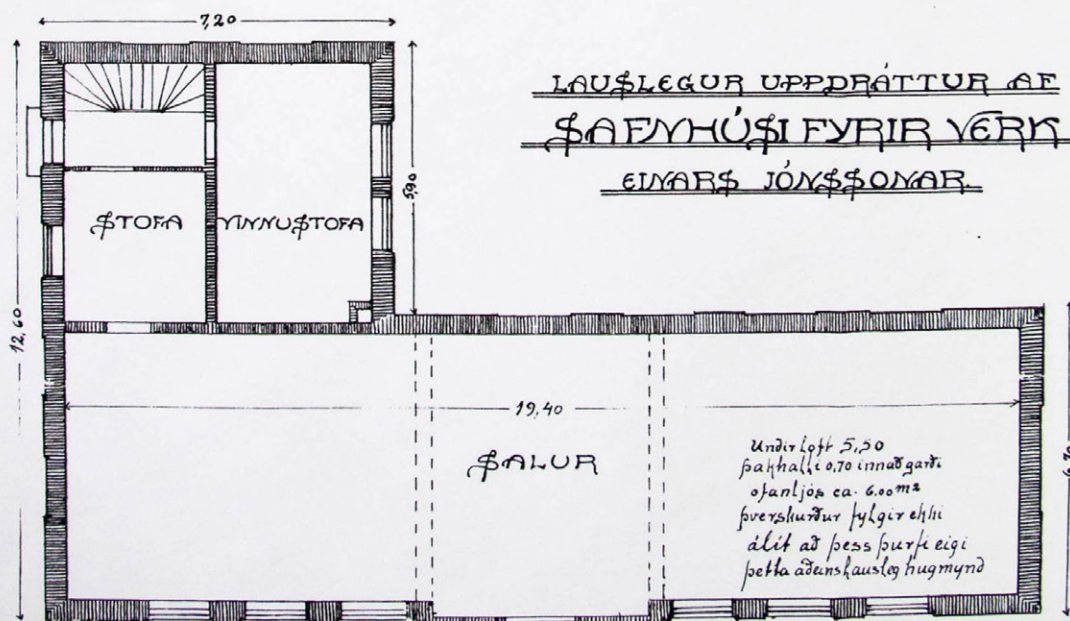 7,20
LAUSLEGUR UPPDRÁTTUR AF
SAFNHÚSI FYRIR VERK
EINARS JÓNSSONAR.
5,90
STOFA
VINNUSTOFA
12,60
19,40
SALUR
6,70
Undir loft 5,50
þakhalli 0,70 innað garði
ofanljós ca. 6.00 m²
þverskurður fylgir ekki
álít að þess þurfi eigi
þetta aðeins lausleg hugmynd